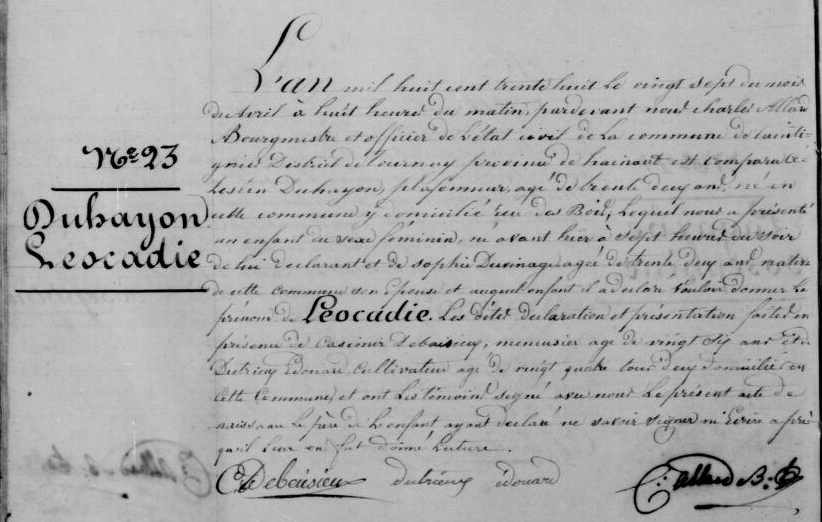 Nº 23
Duhayon
Leocadie
L'an mil huit cent trente huit le vingt sept du mois
du Avril à huit heures du matin, pardevant nous Charles Allard
Bourgmestre et officier de L'état civil de La commune de
District de tournay province de hainaut est comparu
Duhayon, plafonneur, agé de trente deux ans, né en
cette commune y domicilié rue des Bois, Lequel nous a présenté
un enfant du sexe féminin, né avant hier à sept heures du soir
de lui déclarant et de sophie Duvinage agée de trente deux ans native
de cette commune son épouse et auquel enfant il a déclaré vouloir donner Le
prénom de Leocadie. Les dites déclaration et présentation faites en
présence de Casimir Debaisieux, menuisier agé de vingt six ans et de
Dutrieux Edouard Cultivateur agé de vingt quatre tous deux domiciliés en
cette Commune, et ont Les témoins signé avec nous Le présent acte de
naissance Le père de L'enfant ayant déclaré ne savoir signer ni Ecrire après
qu'il Leur en fut donné Lecture.
C Debaisieux dutrieux édouard C: Allard B: